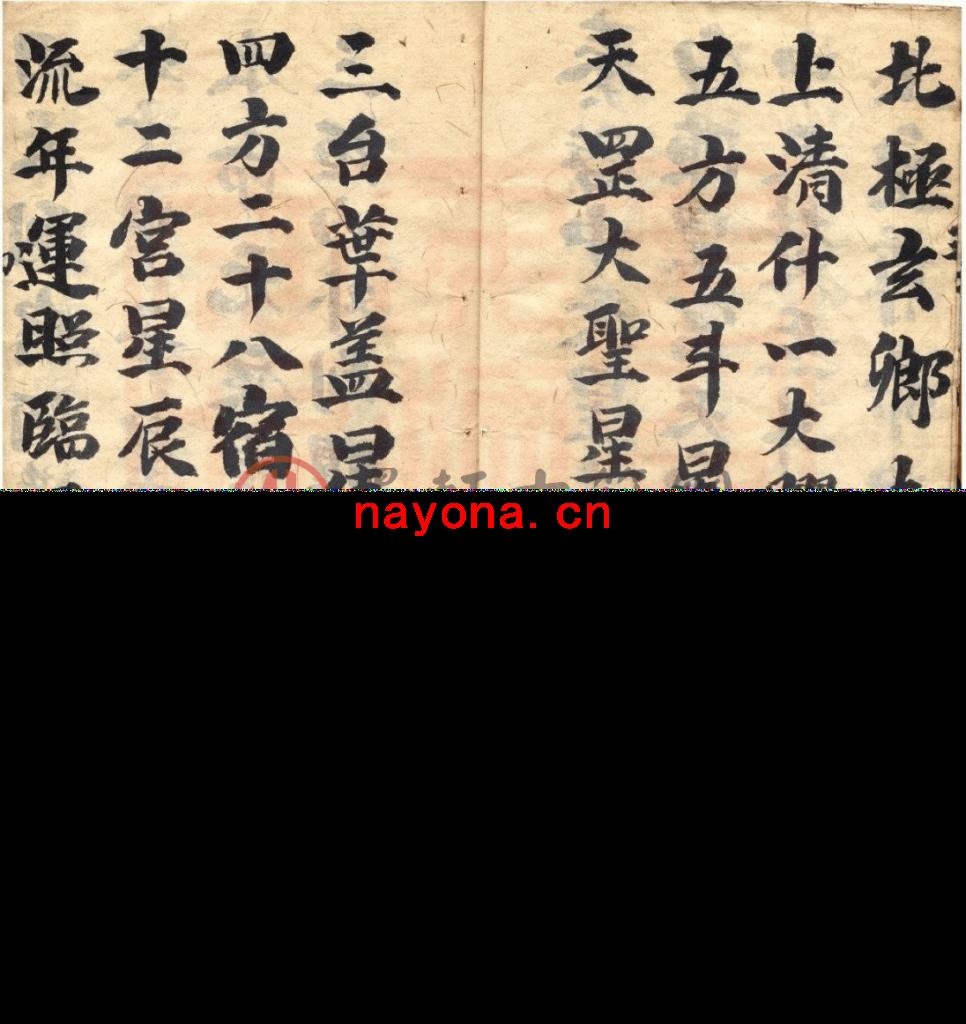 北極玄卿大
上清什一大曜
五方五斗星
天罡大聖星
三台華盖星
四方二十八宿
十二宮星辰
流年運照臨
nayona.cn